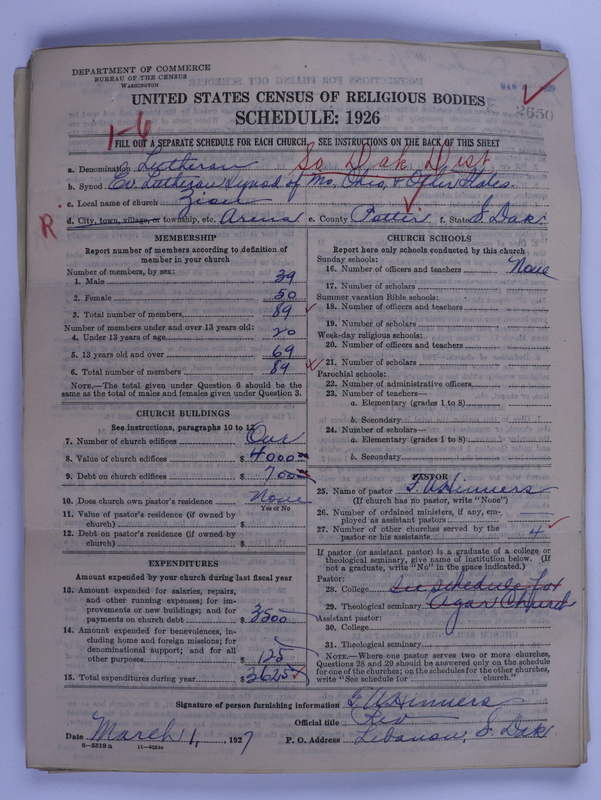 DEPARTMENT OF COMMERCE
BUREAU OF THE CENSUS
WASHINGTON
2650
UNITED STATES CENSUS OF RELIGIOUS BODIES
SCHEDULE: 1926
1-6
FILL OUT A SEPARATE SCHEDULE FOR EACH CHURCH. SEE INSTRUCTIONS ON THE BACK OF THIS SHEET
So. Dak. Dist.
a. Denomination Lutheran
b. Synod Ev. Lutheran Synod of Mo. Ohio, & Other States.
c. Local name of church Zion
R.
d. City, town, village, or township, etc. Arena e. County Potter f. State S. Dak.
MEMBERSHIP
Report number of members according to definition of member in your church
Number of members, by sex:
1. Male 39
2. Female 50
3. Total number of members 89
Number of members under and over 13 years old:
4. Under 13 years of age 20
5. 13 years old and over 69
6. Total number of members 89
NOTE.—The total given under Question 6 should be
same as the total of males and females given under Question 3.
CHURCH BUILDINGS
See instructions, paragraphs 10 to 12
7. Number of church edifices One
8. Value of church edifices $ 4000
9. Debt on church edifices $ 700
10. Does church own pastor's residence None
Yes or No
11. Value of pastor's residence (if owned by
church) $
12. Debt on pastor's residence (if owned by
church) $
EXPENDITURES
Amount expended by your church during last fiscal year
13. Amount expended for salaries, repairs,
and other running expenses; for im-
provements or new buildings; and for
payments on church debt $ 3500
14. Amount expended for benevolences, in-
cluding home and foreign missions; for
denominational support; and for all
other purposes $ 125
15. Total expenditures during year $ 3625
CHURCH SCHOOLS
Report here only schools conducted by this church
Sunday schools:
16. Number of officers and teachers None
17. Number of scholars
Summer vacation Bible schools:
18. Number of officers and teachers
19. Number of scholars
Week-day religious schools:
20. Number of officers and teachers
21. Number of scholars
Parochial schools:
22. Number of administrative officers
23. Number of teachers—
a. Elementary (grades 1 to 8)
b. Secondary
24. Number of scholars—
a. Elementary (grades 1 to 8)
b. Secondary
PASTOR
25. Name of pastor F. W. Hinners
(If church has no pastor, write "None")
26. Number of ordained ministers, if any, em-
ployed as assistant pastors
27. Number of other churches served by the
pastor or his assistants 4
If pastor (or assistant pastor) is a graduate of a college or
theological seminary, give name of institution below. (If
not a graduate, write "No" in the space indicated.)
Pastor:
28. College See schedule for
29. Theological seminary Agar Church
Assistant pastor:
30. College
31. Theological seminary
NOTE.—Where one pastor serves two or more churches,
Questions 28 and 29 should be answered only on the schedule
for one of the churches; on the schedules for the other churches,
write "See schedule for church."
Signature of person furnishing information F. W. Hinners
Official title Rev
Date March 1, 1927 P. O. Address Lebanon, S. Dak
8-5518a 11-